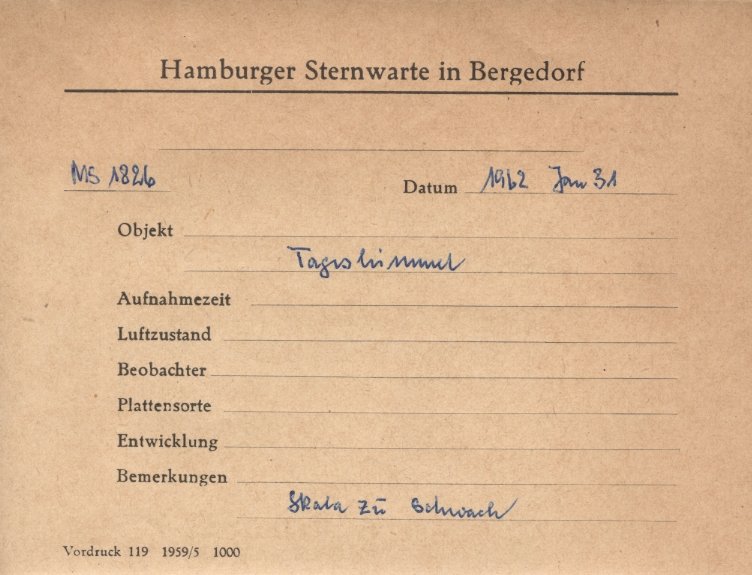 Hamburger Sternwarte in Bergedorf
MS 1826 Datum 1962 Jan 31
Objekt
Tageshimmel
Aufnahmezeit
Luftzustand
Beobachter
Plattensorte
Entwicklung
Bemerkungen
Skala zu schwach
Vordruck 119 1959/5 1000